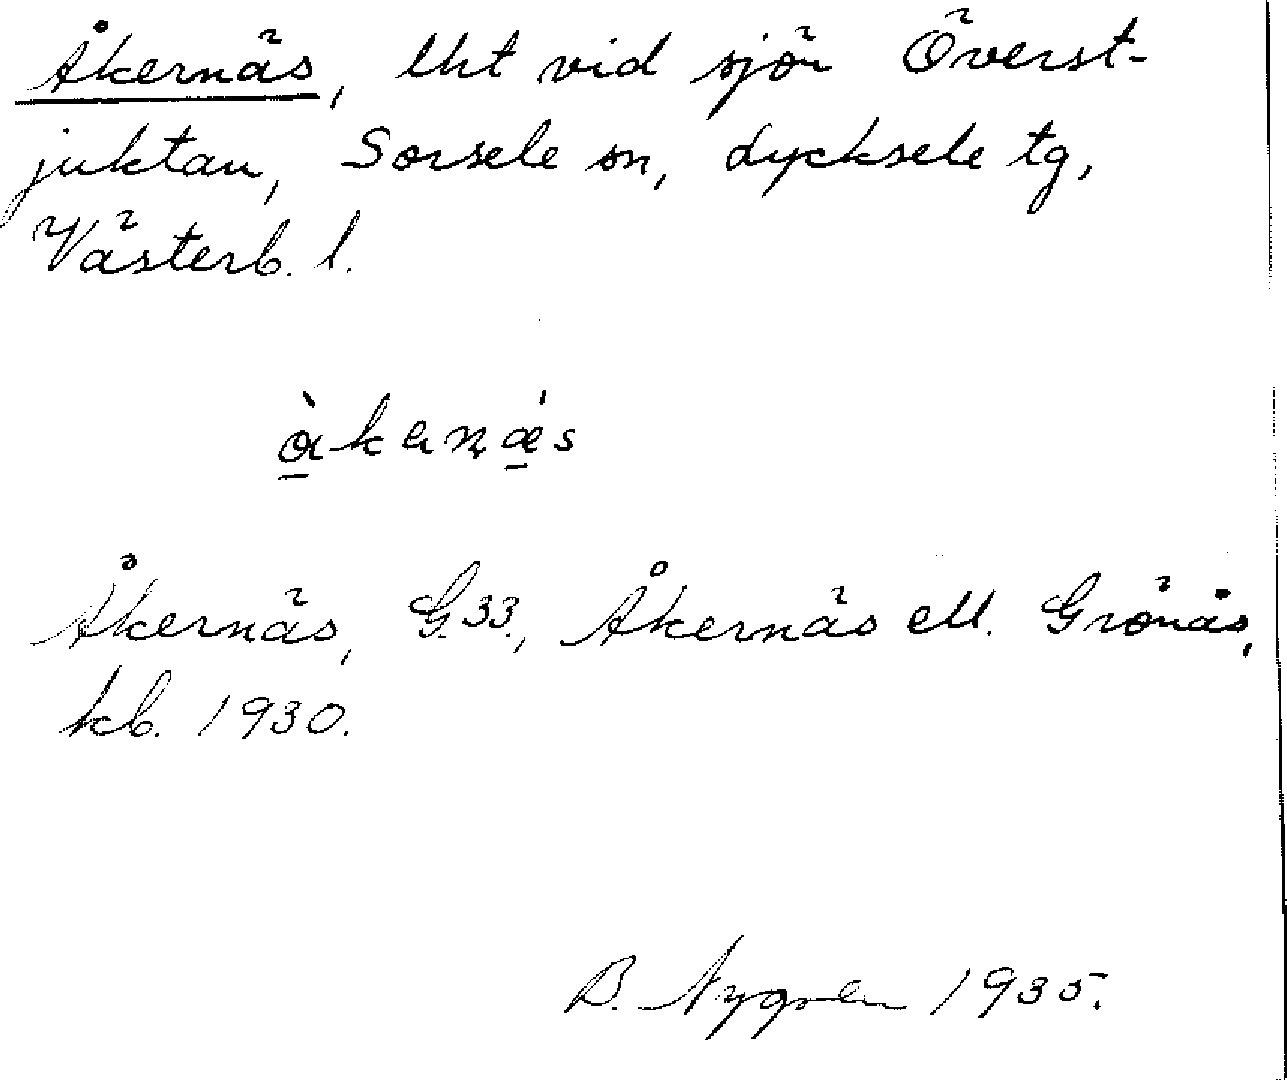 Åkernäs, lht vid sjön Överst-
juktan, Sorsele sn, Lycksele tg,
Västerb. l.
Åkernäs, G.33., Åkernäs ell. Grönås,
kb. 1930.
B. Nygren 1935.